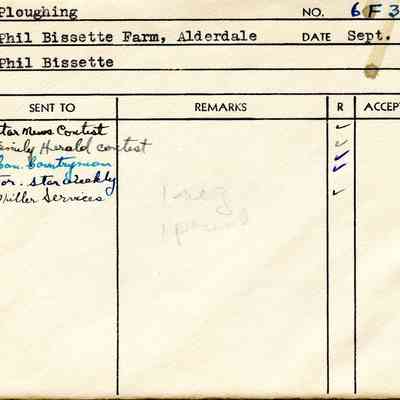 Ploughing NO. 6 F 3
Phil Bissette Farm, Alderdale DATE Sept.
Phil Bissette
SENT TO REMARKS R ACCEPT
tar News Contest ✓
amily Herald contest ✓
Can. Countryman ✓
Tor. Star Weekly ✓
Miller Services ✓
1 neg
1 print